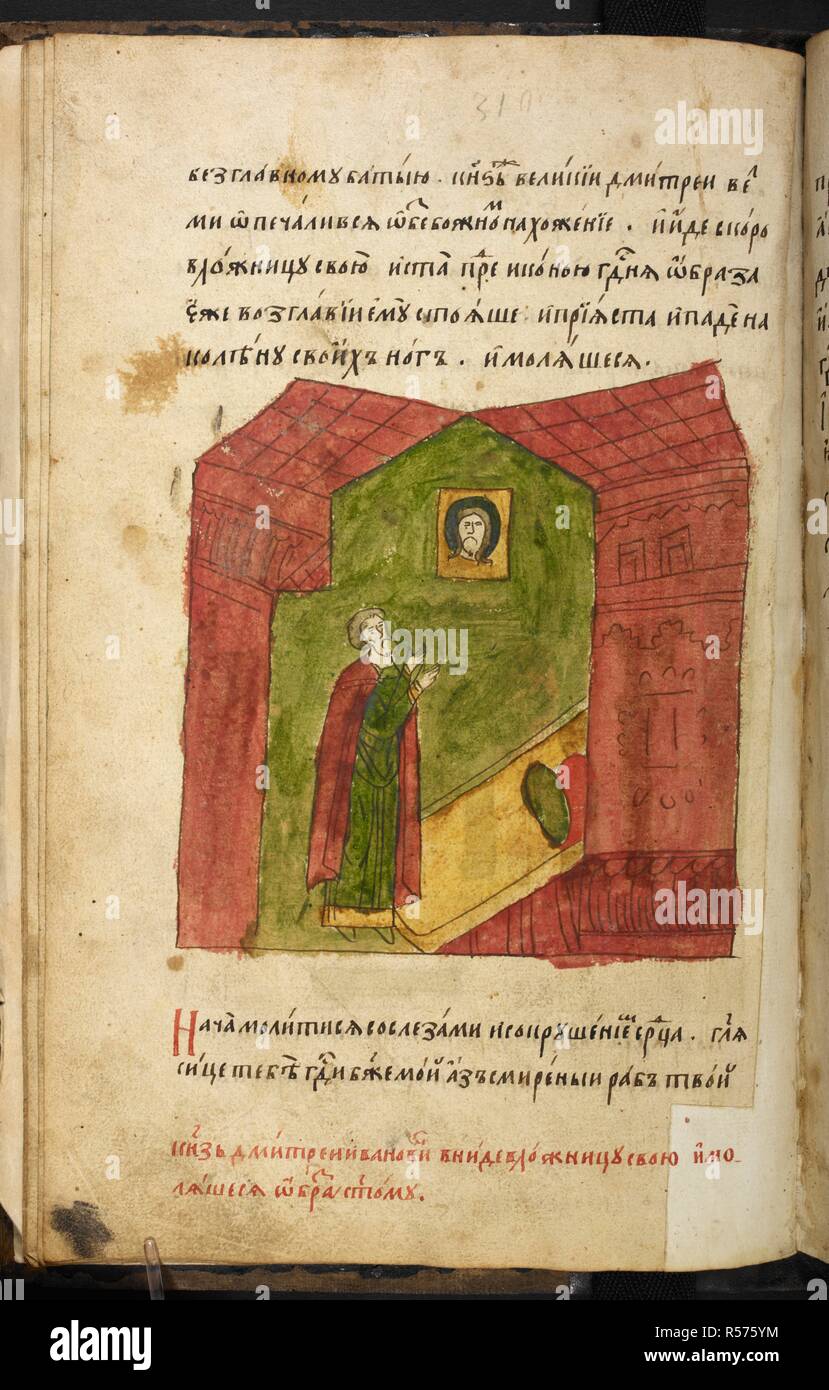 безглавному батыю . кн҃ѕь великїи дмитреи вел
ми ѡпечалився ѡ безбожнѡм нахожение . и иде скоро
вложницу свою и ста пре иконою гдня ѡбраза
еже возглавїи ему стояше и прїя ста и паде на
колѣну своихъ ногъ . и моляшеся .
Нача молитися со слезами и сокрушенїем срца . гля
сице тебѣ гди бже мой азъ смиреный рабъ твой
кн҃зь дмитреи иванович вниде вложницу свою и мо-
ляшеся ѡбразу стому .
alamy
Image ID: R575YM
www.alamy.com